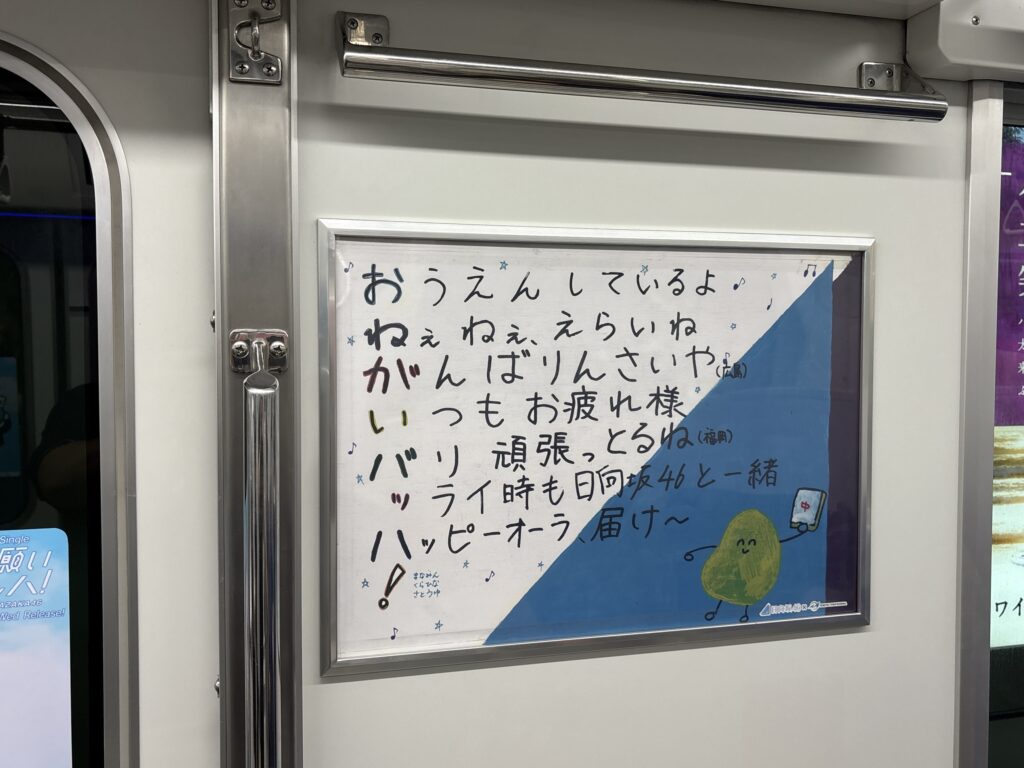 おうえんしているよ
ねぇねぇ、えらいね
がんばりんさいや(広島)
いつもお疲れ様
バリ 頑張っとるね(福岡)
ッライ時も日向坂46と一緒
ハッピーオーラ、届け〜
!
まなみん
くらひな
さとうゆ
中
日向坂46
Single
願い
AZAKA46
Wed Release!
ワイ